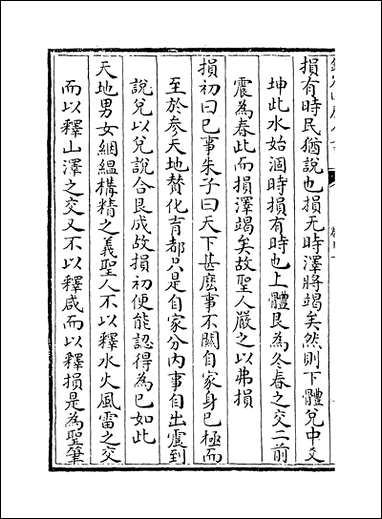 損有時民猶說也損无時澤將竭矣然則下體兌中爻
坤此水始涸時損有時也上體艮為冬春之交二前
震為春此而損澤竭矣故聖人嚴之以弗損
損初曰已事朱子曰天下甚麽事不關自家身己極而
至於參天地賛化育都只是自家分内事自出處到
說兌以兌說合艮成故損初便能認得為已如此
天地男女絪縕構精之義聖人不以釋水火風雷之交
而以釋山澤之交又不以釋咸而以釋損是為聖筆